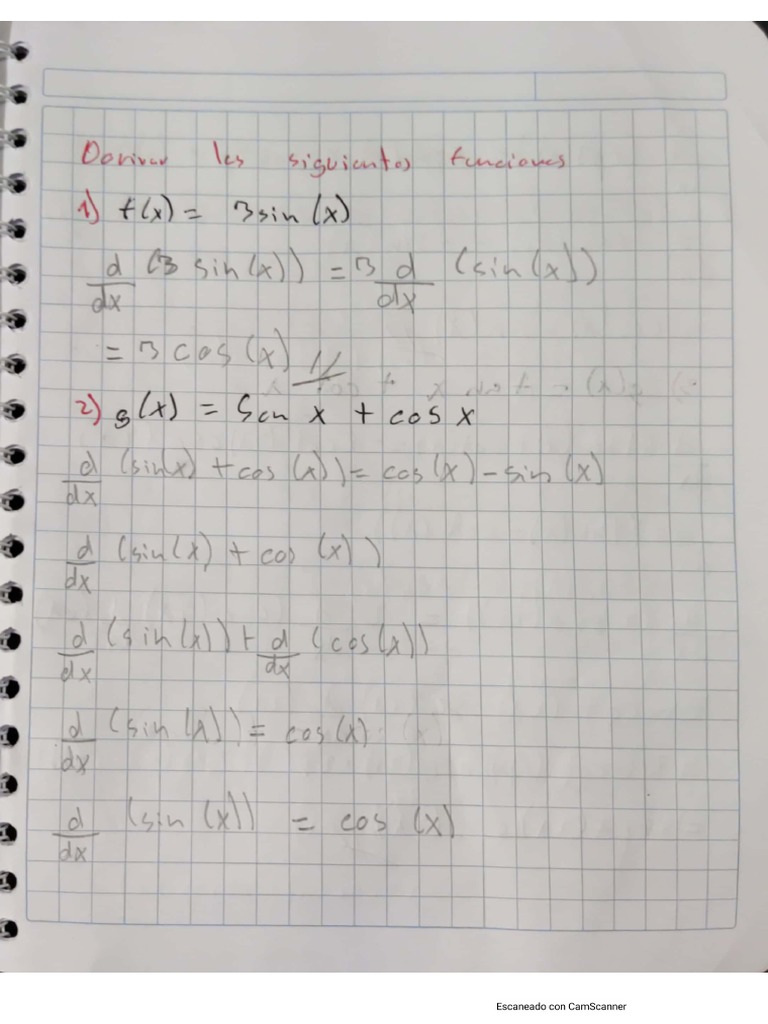 Derivar las siguientes funciones
1) f(x) = 3sin(x)
d/dx (3 sin(x)) = 3 d/dx (sin(x))
= 3 cos(x) //
2) g(x) = Sen x + cos x
d/dx (sin(x) + cos(x)) = cos(x) - sin(x)
d/dx (sin(x) + cos(x))
d/dx (sin(x)) + d/dx (cos(x))
d/dx (sin(x)) = cos(x)
d/dx (sin(x)) = cos(x)
Escaneado con CamScanner